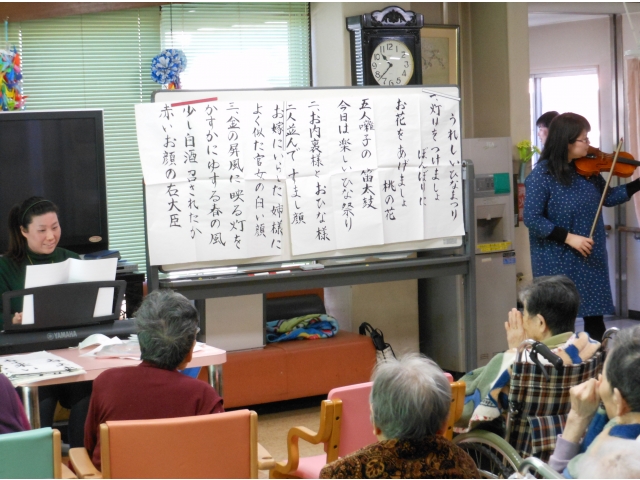 うれしいひなまつり
一、灯りをつけましょ
ぼんぼりに
お花をあげましょ
桃の花
五人囃子の笛太鼓
今日は楽しいひな祭り
二、お内裏様とおひな様
二人並んですまし顔
お嫁にいらした姉様に
よく似た官女の白い顔
三、金の屏風に映る灯を
かすかにゆする春の風
少し白酒召されたか
赤いお顔の右大臣
YAMAHA